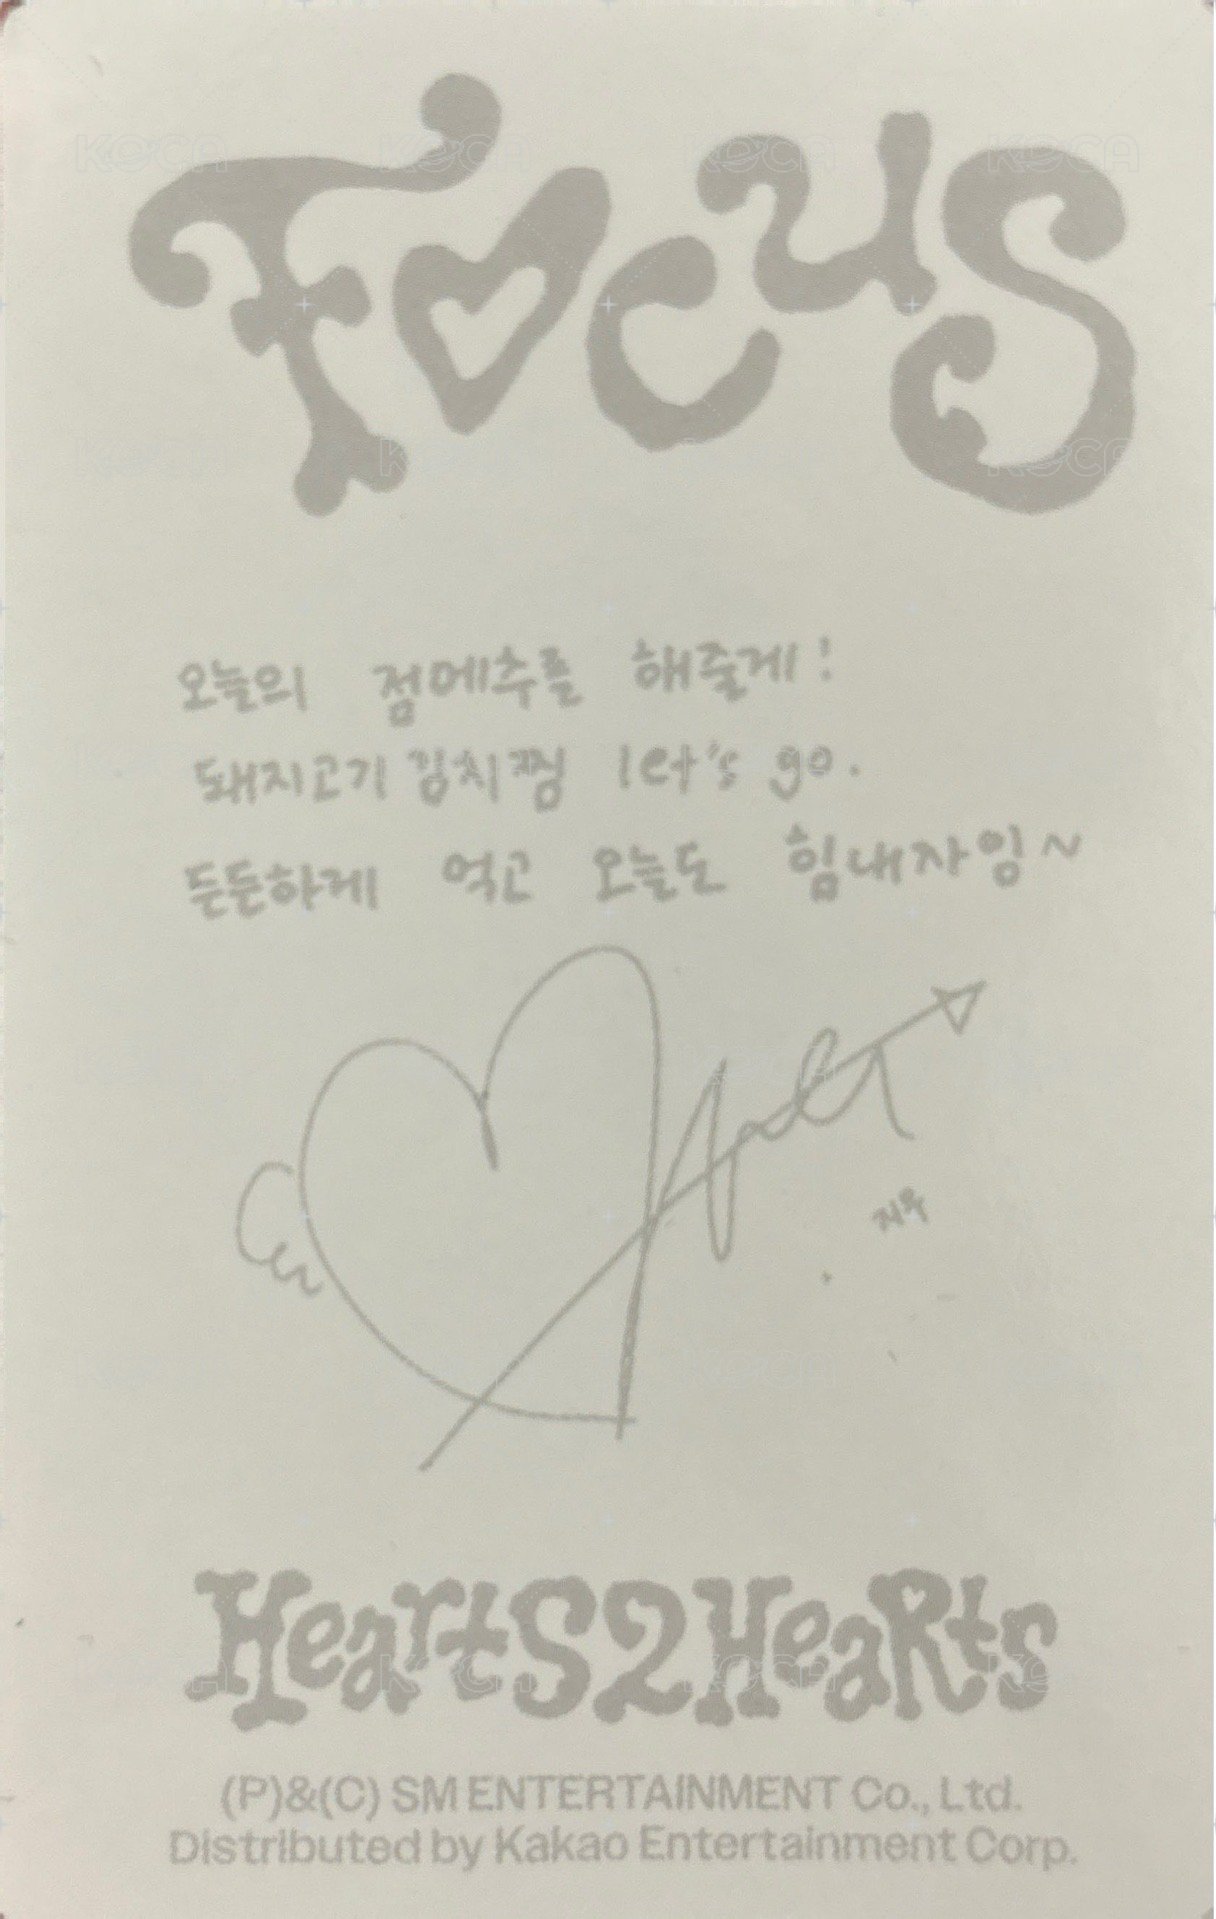 Focus
오늘의 점메추를 해줄게!
돼지고기 김치찜 let's go.
든든하게 먹고 오늘도 힘내자잉~
지우
Hearts2Hearts
(P)&(C) SM ENTERTAINMENT Co., Ltd.
Distributed by Kakao Entertainment Corp.
KOCA